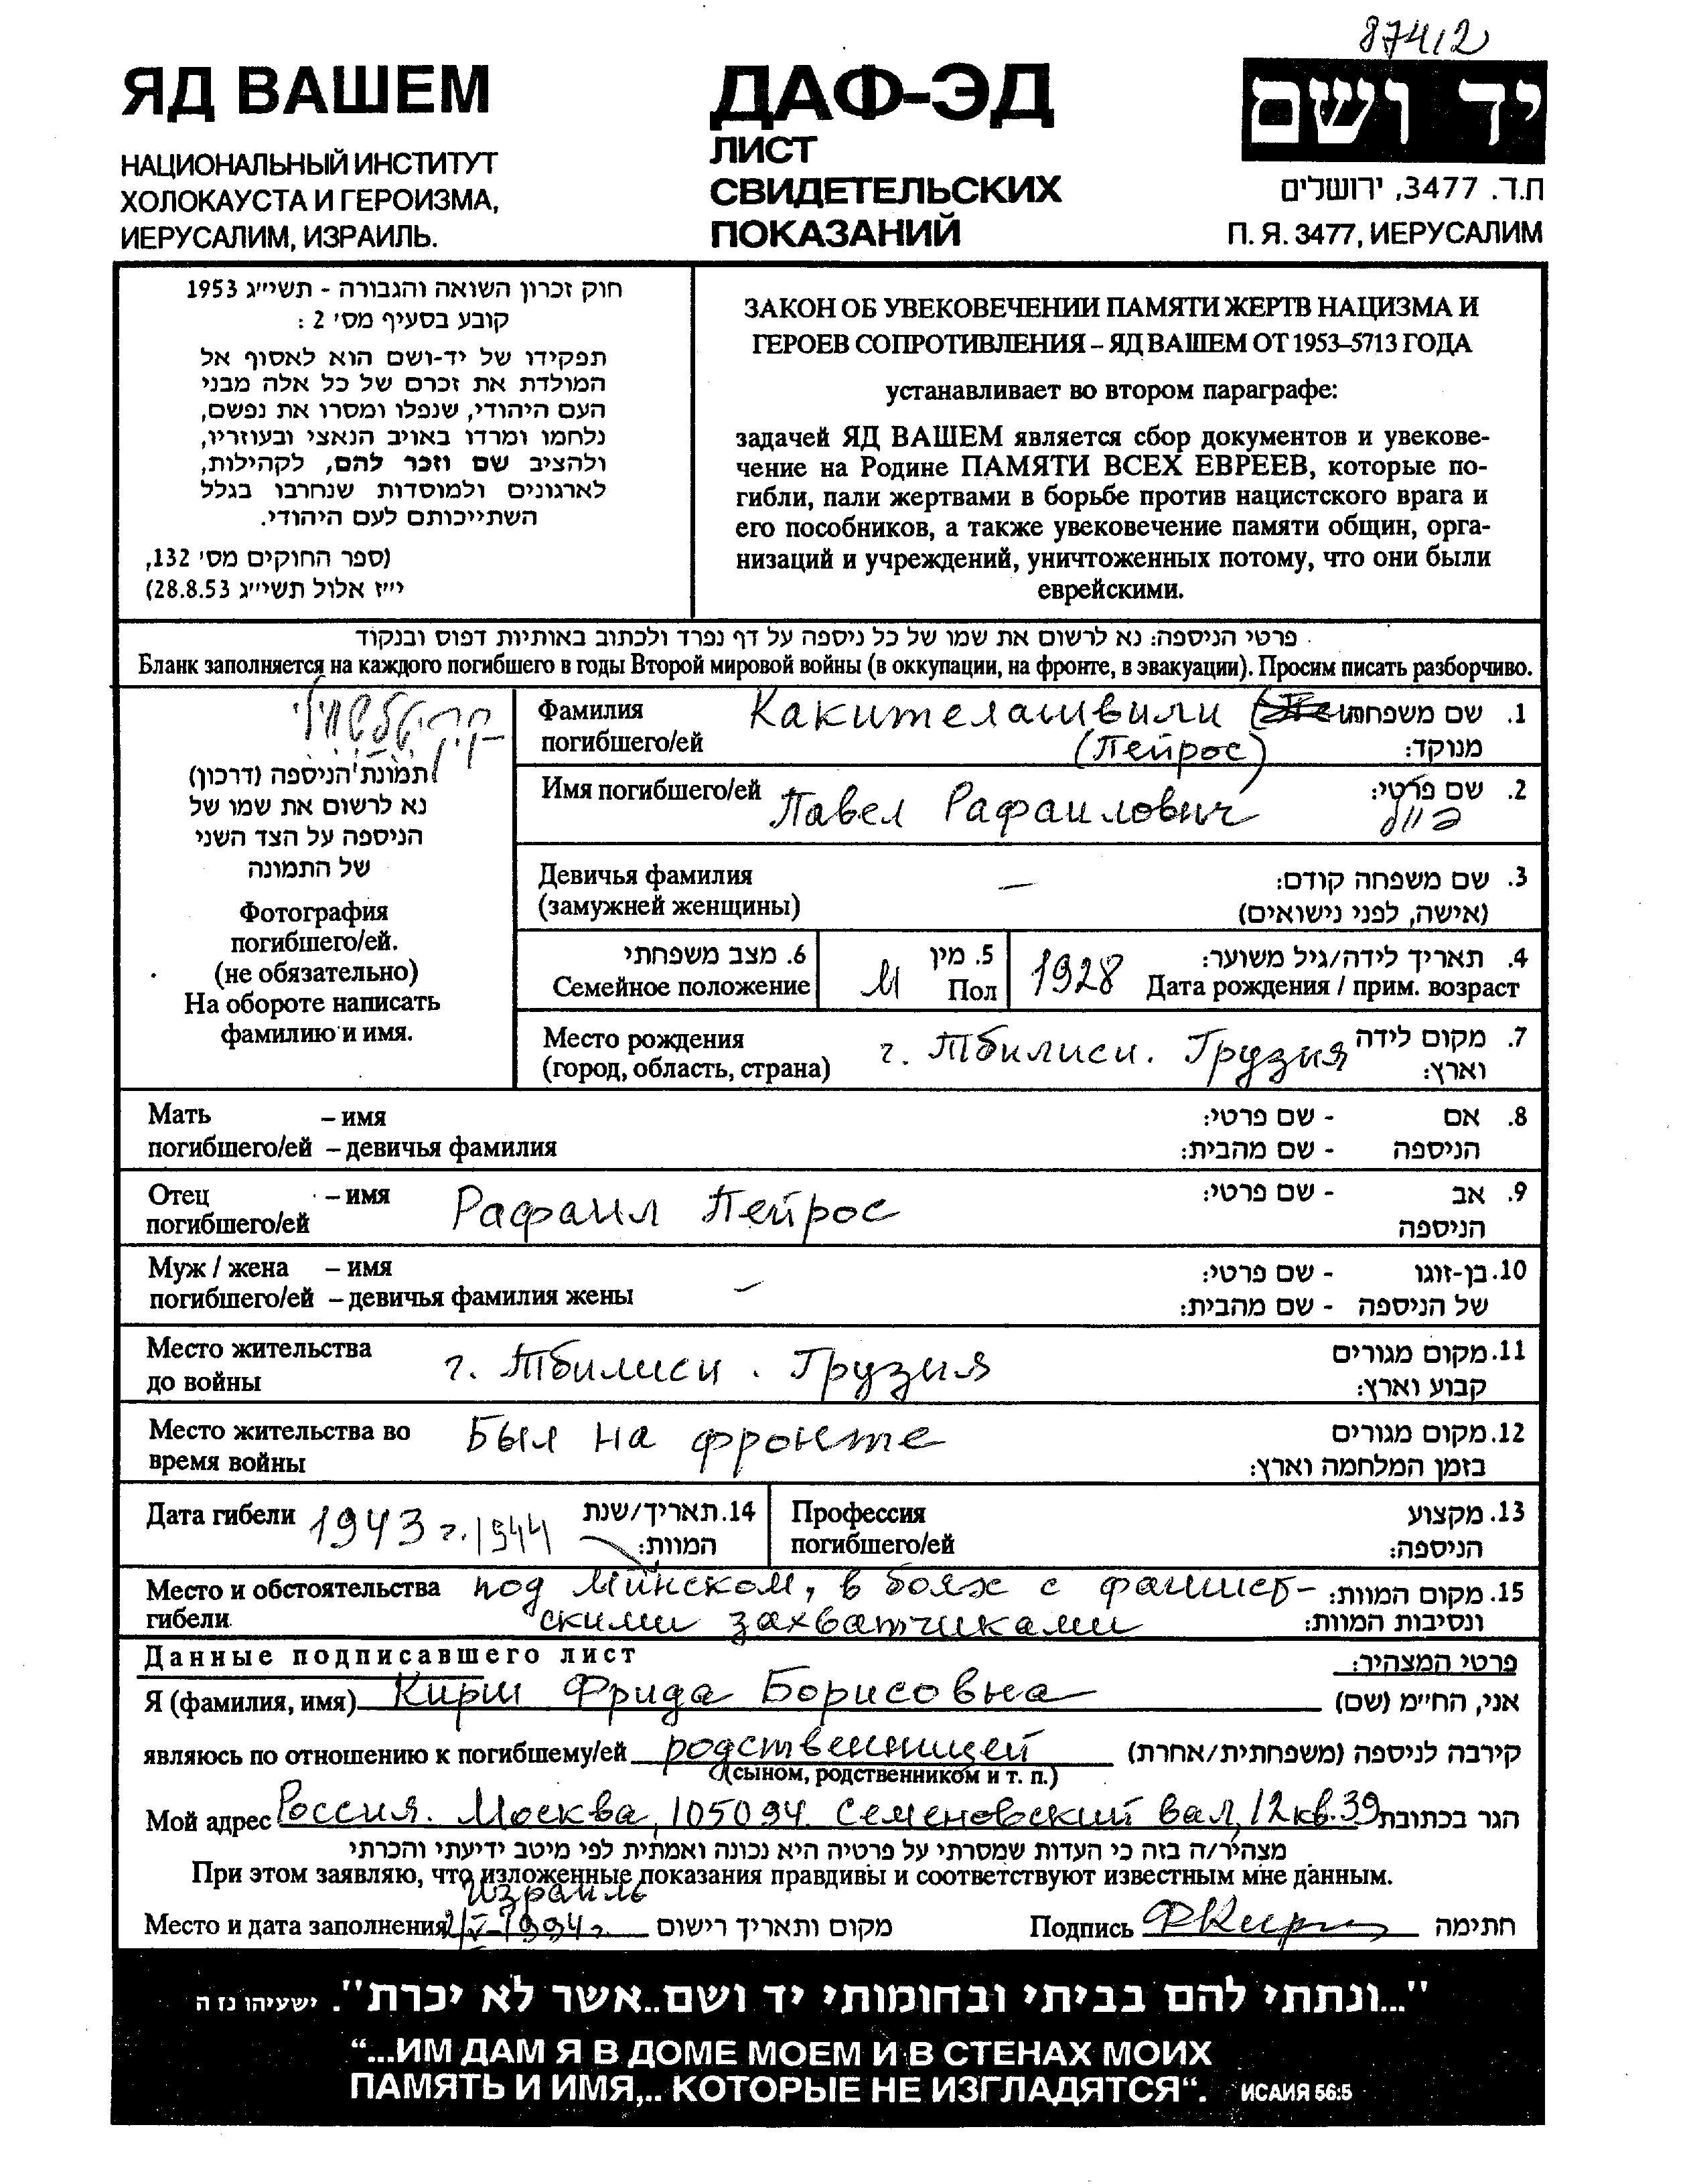 87412
ЯД ВАШЕМ
НАЦИОНАЛЬНЫЙ ИНСТИТУТ
ХОЛОКАУСТА И ГЕРОИЗМА,
ИЕРУСАЛИМ, ИЗРАИЛЬ.
ДАФ-ЭД
ЛИСТ
СВИДЕТЕЛЬСКИХ
ПОКАЗАНИЙ
יד ושם
ת.ד. 3477, ירושלים
П. Я. 3477, ИЕРУСАЛИМ
חוק זכרון השואה והגבורה - תשי״ג 1953
קובע בסעיף מס׳ 2 :
תפקידו של יד-ושם הוא לאסוף אל
המולדת את זכרם של כל אלה מבני
העם היהודי, שנפלו ומסרו את נפשם,
נלחמו ומרדו באויב הנאצי ובעוזריו,
ולהציב שם וזכר להם, לקהילות,
לארגונים ולמוסדות שנחרבו בגלל
השתייכותם לעם היהודי.
(ספר החוקים מס׳ 132,
י״ז אלול תשי״ג 28.8.53)
ЗАКОН ОБ УВЕКОВЕЧЕНИИ ПАМЯТИ ЖЕРТВ НАЦИЗМА И
ГЕРОЕВ СОПРОТИВЛЕНИЯ – ЯД ВАШЕМ ОТ 1953–5713 ГОДА
устанавливает во втором параграфе:
задачей ЯД ВАШЕМ является сбор документов и увекове-
чение на Родине ПАМЯТИ ВСЕХ ЕВРЕЕВ, которые по-
гибли, пали жертвами в борьбе против нацистского врага и
его пособников, а также увековечение памяти общин, орга-
низаций и учреждений, уничтоженных потому, что они были
еврейскими.
פרטי הניספה: נא לרשום את שמו של כל ניספה על דף נפרד ולכתוב באותיות דפוס ובנקוד
Бланк заполняется на каждого погибшего в годы Второй мировой войны (в оккупации, на фронте, в эвакуации). Просим писать разборчиво.
תמונת הניספה (דרכון)
נא לרשום את שמו של
הניספה על הצד השני
של התמונה
Фотография
погибшего/ей.
(не обязательно)
На обороте написать
фамилию и имя.
Фамилия Какителашвили שם משפחה 1.
погибшего/ей (Пейрос) מנוקד:
Имя погибшего/ей Павел Рафаилович שם פרטי: 2.
Девичья фамилия — שם משפחה קודם: 3.
(замужней женщины) (אישה, לפני נישואים)
6. מצב משפחתי 5. מין 4. תאריך לידה/גיל משוער:
Семейное положение М Пол 1928 Дата рождения / прим. возраст
Место рождения г. Тбилиси. Грузия מקום לידה 7.
(город, область, страна) וארץ:
Мать – имя 8. אם - שם פרטי:
погибшего/ей – девичья фамилия הניספה - שם מהבית:
Отец – имя Рафаил Пейрос 9. אב - שם פרטי:
погибшего/ей הניספה
Муж / жена – имя 10. בן-זוגו - שם פרטי:
погибшего/ей – девичья фамилия жены — של הניספה - שם מהבית:
Место жительства г. Тбилиси. Грузия 11. מקום מגורים
до войны קבוע וארץ:
Место жительства во Был на фронте 12. מקום מגורים
время войны בזמן המלחמה וארץ:
Дата гибели 1943 г. 1944 14. תאריך/שנת המוות:
Профессия 13. מקצוע
погибшего/ей הניספה:
Место и обстоятельства под Минском, в боях с фашист- 15. מקום המוות:
гибели скими захватчиками ונסיבות המוות:
Данные подписавшего лист פרטי המצהיר:
Я (фамилия, имя) Кирш Фрида Борисовна אני, החי״מ (שם)
являюсь по отношению к погибшему/ей родственницей קירבה לניספה (משפחתית/אחרת)
(сыном, родственником и т. п.)
Мой адрес Россия. Москва, 105094. Семеновский вал, 12 кв. 39 הגר בכתובת
מצהיר/ה בזה כי העדות שמסרתי על פרטיה היא נכונה ואמתית לפי מיטב ידיעתי והכרתי
При этом заявляю, что изложенные показания правдивы и соответствуют известным мне данным.
Израиль
Место и дата заполнения V-1994г. מקום ותאריך רישום Подпись ФКирш חתימה
"...ונתתי להם בביתי ובחומותי יד ושם..אשר לא יכרת". ישעיהו נז ה
“...ИМ ДАМ Я В ДОМЕ МОЕМ И В СТЕНАХ МОИХ
ПАМЯТЬ И ИМЯ,.. КОТОРЫЕ НЕ ИЗГЛАДЯТСЯ“. ИСАИЯ 56:5